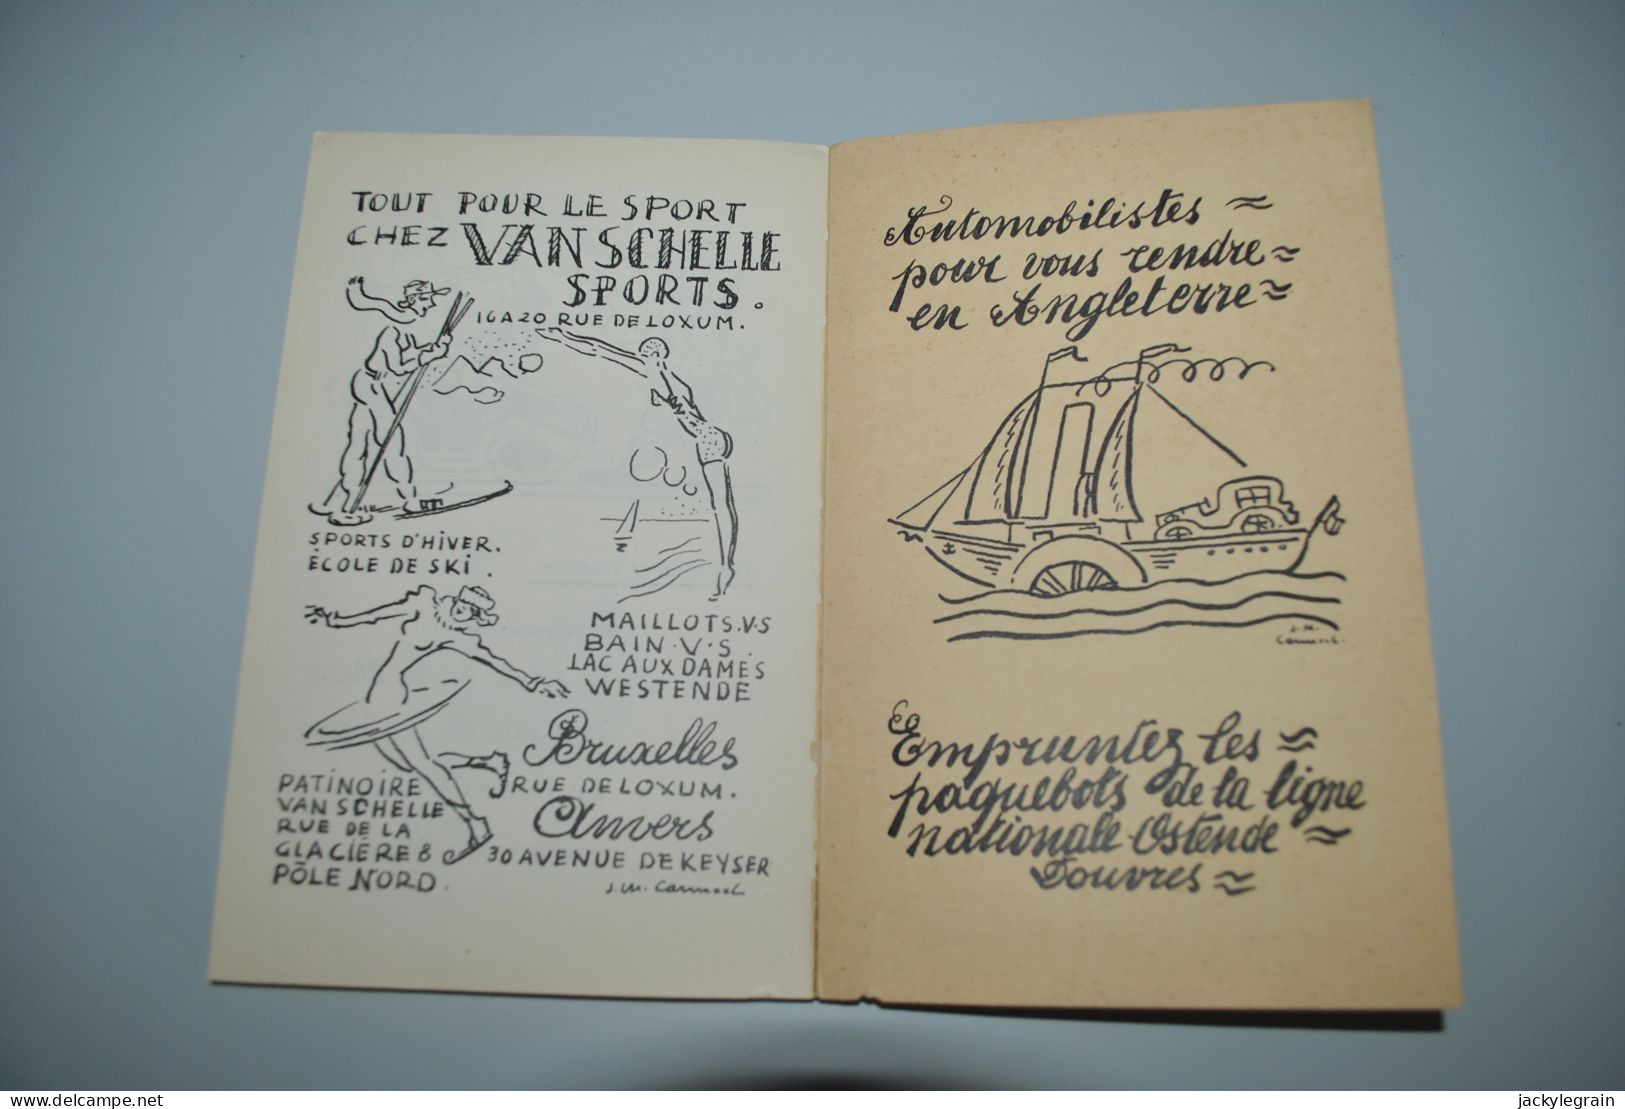 TOUT POUR LE SPORT
CHEZ VAN SCHELLE
SPORTS.
16 A 20 RUE DE LOXUM.
SPORTS D'HIVER.
ÉCOLE DE SKI.
MAILLOTS.V.S
BAIN.V.S.
LAC AUX DAMES
WESTENDE
Bruxelles
RUE DE LOXUM.
Anvers
30 AVENUE DE KEYSER
PATINOIRE
VAN SCHELLE
RUE DE LA
GLACIÈRE 8
PÔLE NORD.
Automobilistes
pour vous rendre
en Angleterre
Empruntez les
paquebots de la ligne
nationale Ostende
Douvres
delcampe.net
jackylegrain